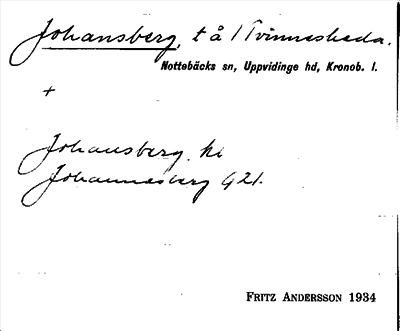 Johansberg, t å 1 Tvinnesheda.
Nottebäcks sn, Uppvidinge hd, Kronob. l.
+
Johansberg. hl
Johannesberg G21.
Fritz Andersson 1934